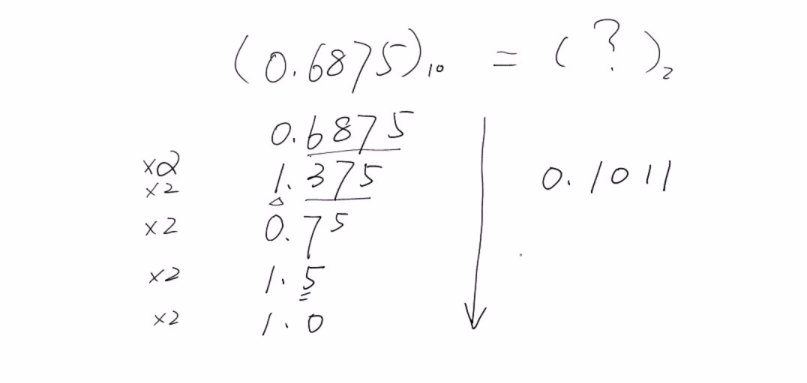 (0.6875)₁₀ = (?)₂
0.6875
×2
×2 1.375
×2 0.75
×2 1.5
×2 1.0
0.1011